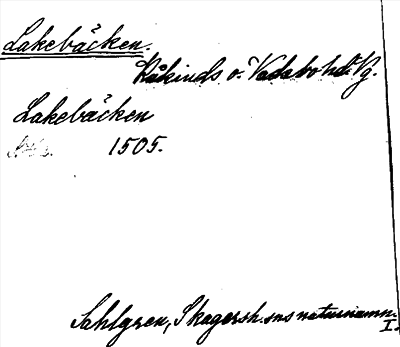 Lakebäcken.
Kåkinds o. Vadsbo hd. Vg.
Lakebäcken
1505.
Sahlgren, Skagersh.sns naturnamn.
I.